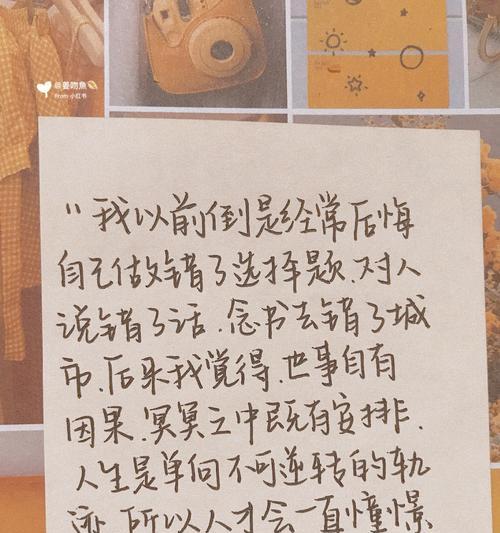 @姜吻魚
From 小红书
"我以前倒是经常后悔
自己做错了选择题.对人
说错了话.念书去错了城
市.后来我觉得.世事自有
因果.冥冥之中既有安排.
人生是单向不可逆转的轨
迹.所以人才会一直憧憬